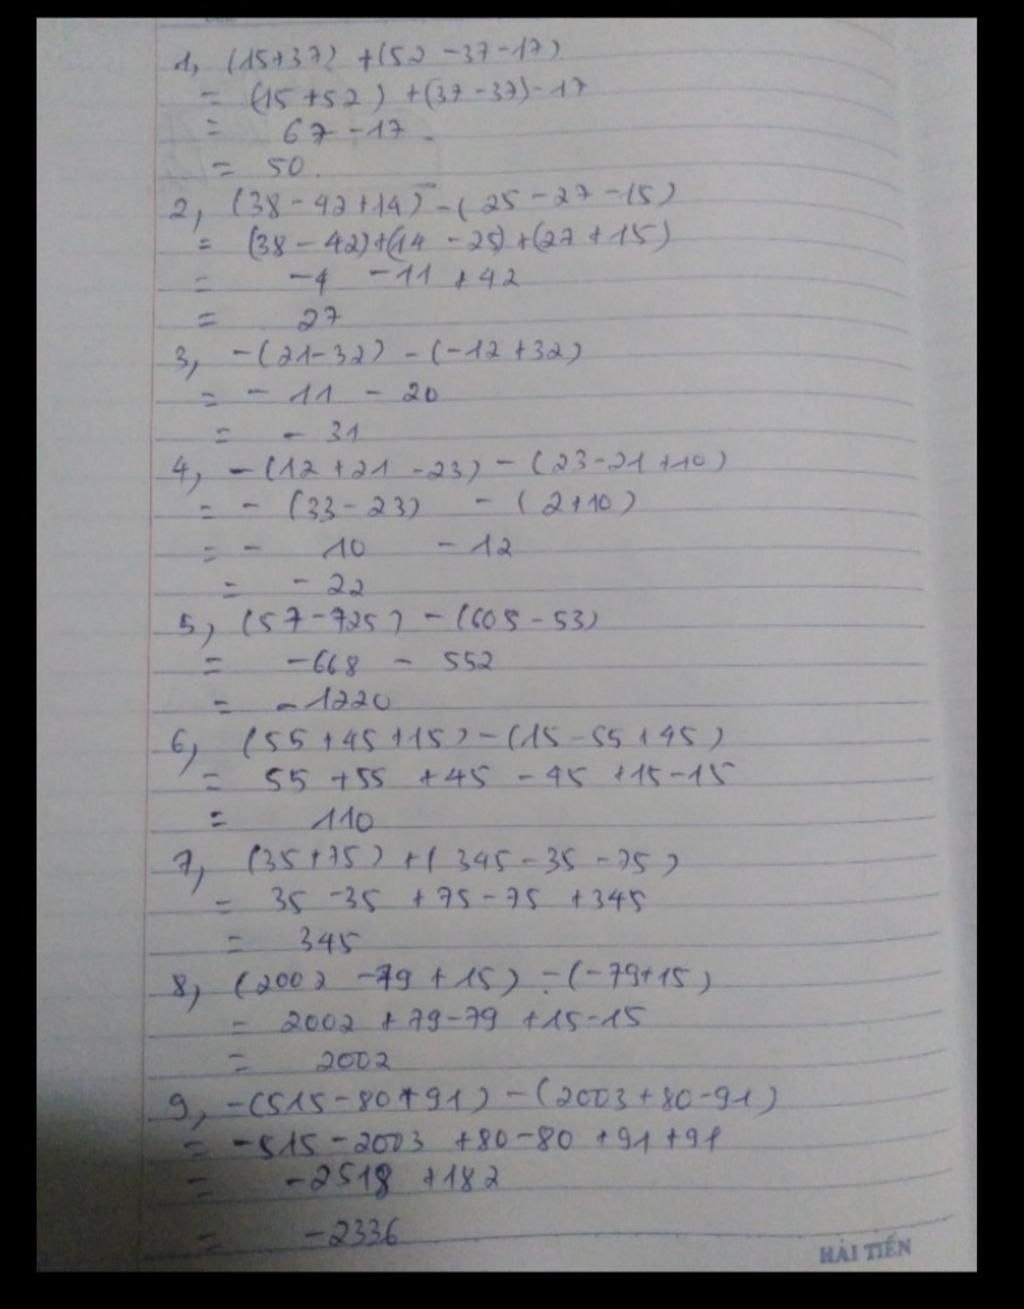 1, (15+37) +(52 -37-17)
= (15 +52) +(37-37)-17
= 67 -17.
= 50.
2, (38-42+14) -(25-27-15)
= (38-42)+(14 -25)+(27+15)
= -4 -11 +42
= 27
3, -(21-32) -(-12+32)
= - 11 - 20
= - 31
4, -(12+21-23) -(23-21+10)
= - (33-23) - (2+10)
= - 10 - 12
= - 22
5, (57-725) -(605-53)
= -668 - 552
= -1220
6, (55+45+15)-(15-55+45)
= 55 +55 +45 -45 +15-15
= 110
7, (35+75) +(345-35-75)
= 35 -35 +75-75 +345
= 345
8, (2002 -79 +15) -(-79+15)
= 2002 +79-79 +15-15
= 2002
9, -(515-80+91) -(2003+80-91)
= -515-2003 +80-80 +91+91
= -2518 +182
= -2336
HẢI TIẾN